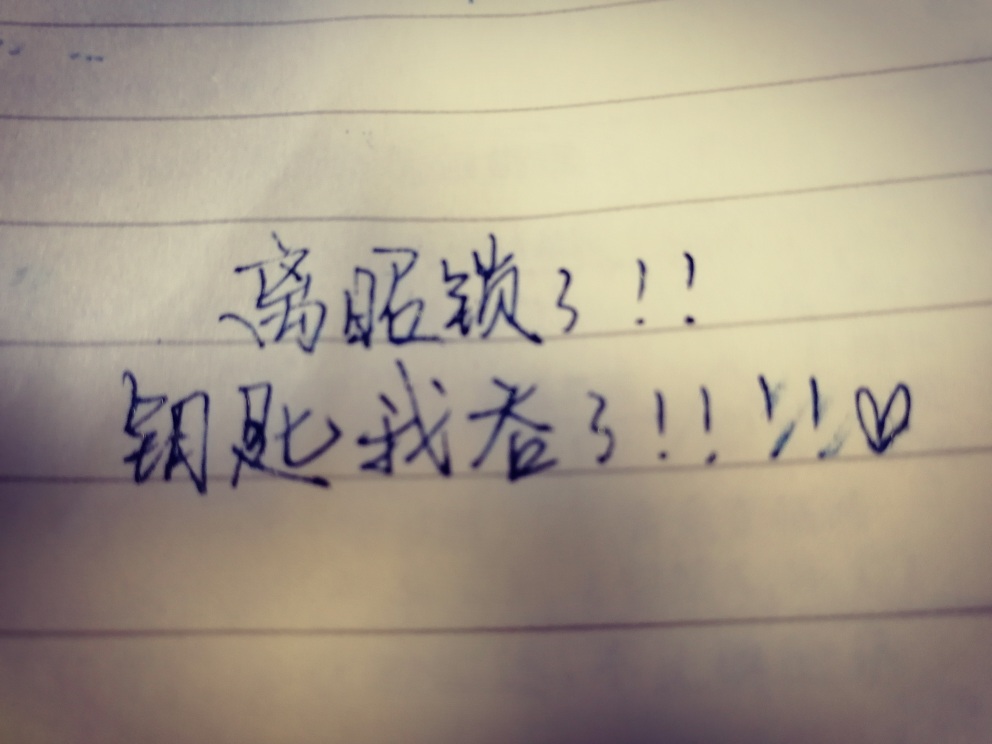 离昭锁了！！
钥匙我吞了！！！！♡